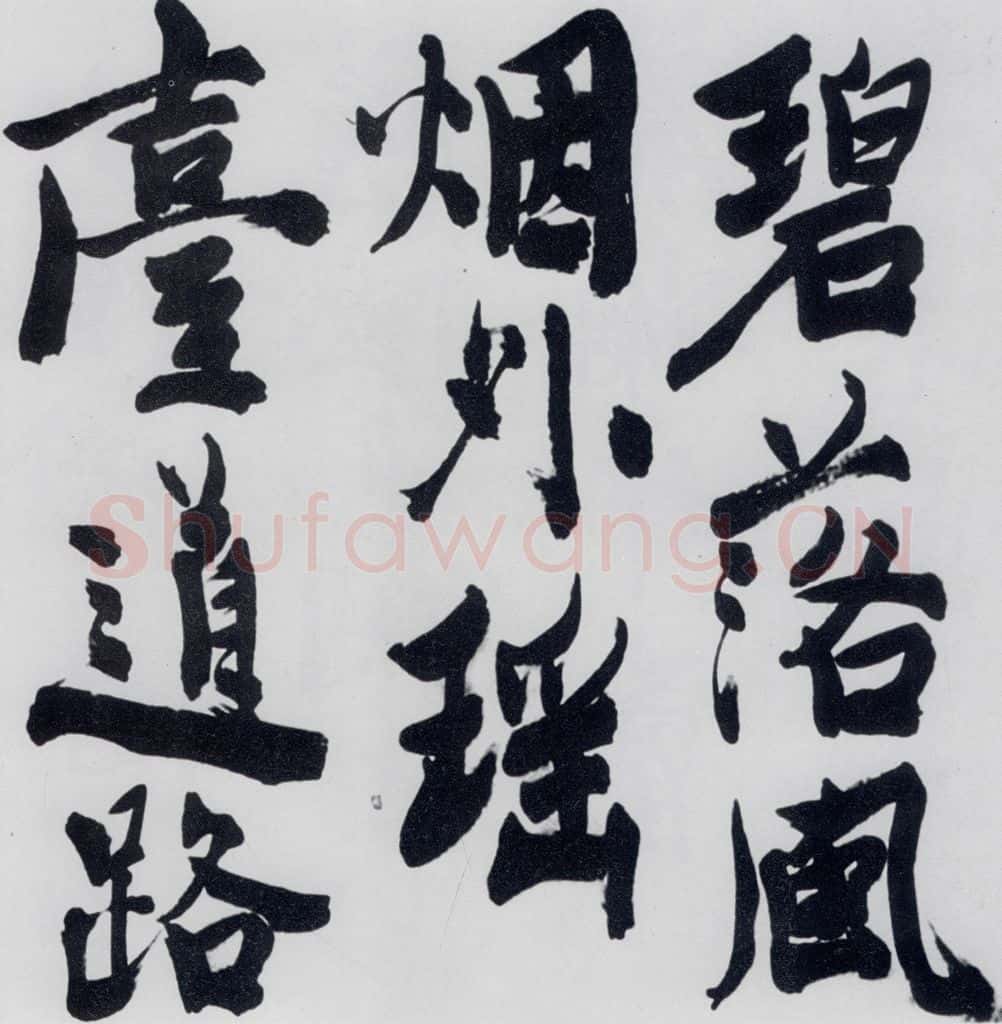 碧落風
烟外瑶
臺道路
Shufawang.CN